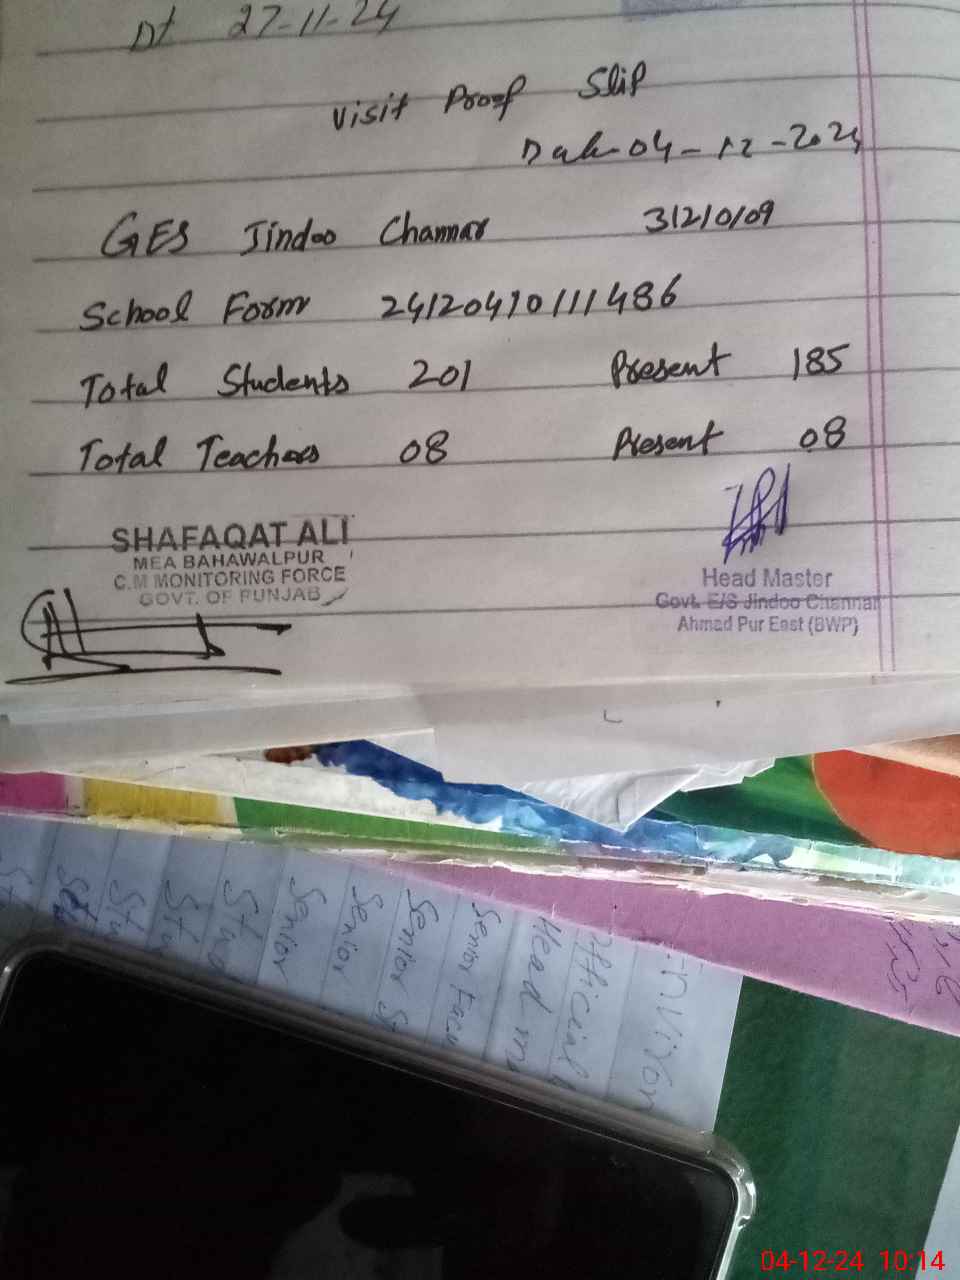 Dt 27-11-24
Visit Proof Slip
Date 04-12-2024
GES Jindoo Channar 31210109
School Form 24120410111486
Total Students 201 Present 185
Total Teachers 08 Present 08
SHAFAQAT ALI
MEA BAHAWALPUR
C.M MONITORING FORCE
GOVT. OF PUNJAB
Head Master
Govt. E/S Jindoo Channar
Ahmad Pur East (BWP)
Senior
Senior
Senior St
Senior Facu
Head m
Official
Environ
04-12-24 10:14